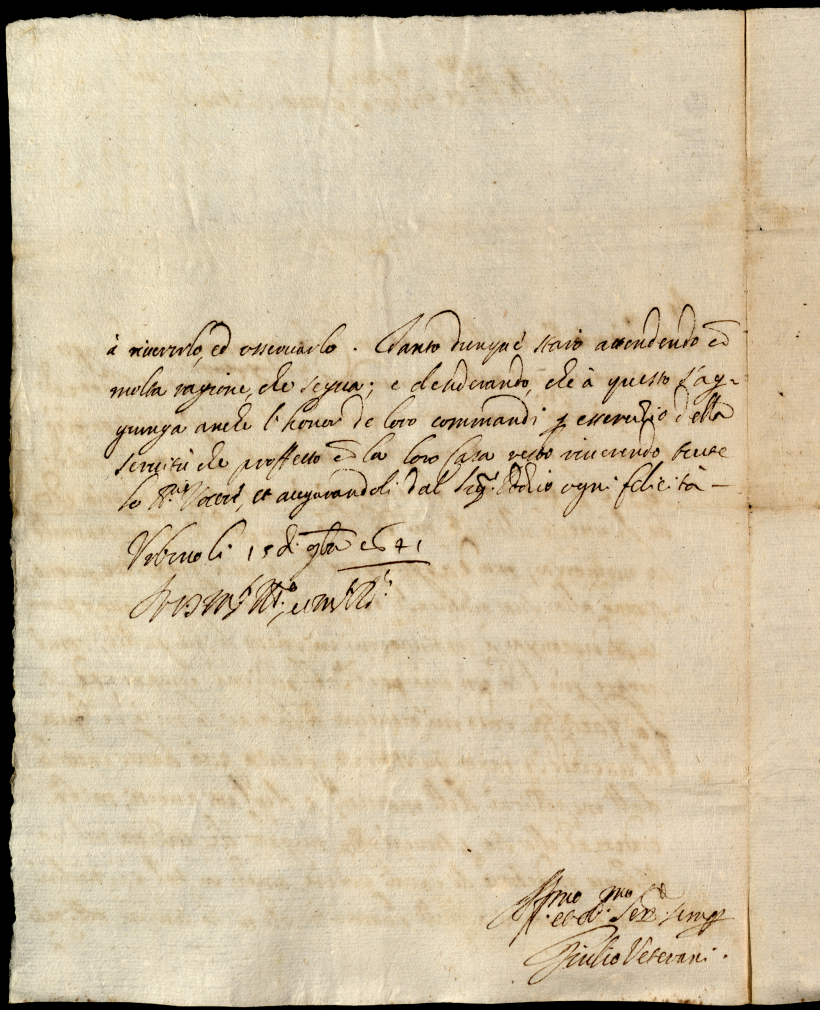 à riuerirlo, ed osseruarlo. Tanto dunque starò attendendo con
molta ragione, che segua; e desiderando, che à questo s'ag=
giunga anche l'honor de loro commandi p essercitio della
seruitù che proffesso con la loro Casa resto riuerendo tutte
lo et augurandoli dal Sig.r Iddio ogni felicità —
Vrbino li 15 di 9bre 1641
Aff.mo et obl.mo Ser.re semp
Giulio Veterani.